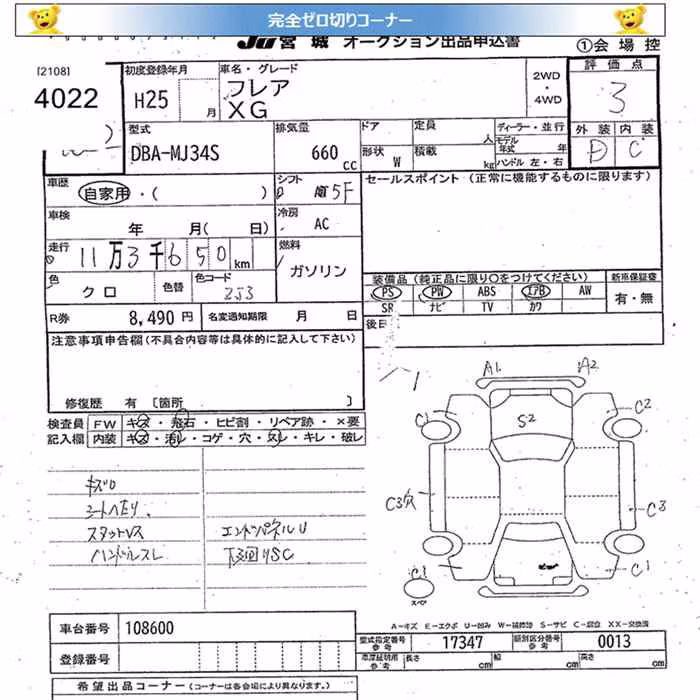 完全ゼロ切りコーナー
JU 宮城 オークション出品申込書
①会場控
[2108]
4022
初度登録年月
H25
月
車名・グレード
フレア
XG
2WD
・
4WD
評価点
3
型式
DBA-MJ34S
排気量
660
cc
ドア
定員
人
形状
W
積載
kg
ディーラー・並行
モデル
年式
年
ハンドル 左・右
外装
内装
D
C
車歴
自家用・( )
シフト
5F
セールスポイント(正常に機能するものに限ります)
車検
年 月( 日)
冷房
AC
走行
11万3千650km
燃料
ガソリン
色
クロ
色替
色コード
ZJ3
装備品(純正品に限り○をつけてください)
新車保証書
PS
PW
ABS
エアB
AW
有・無
SR
ナビ
TV
カワ
R券
8,490円
名変通知期限
月 日
後日
注意事項申告欄(不具合内容等は具体的に記入して下さい)
修復歴 有 [箇所 ]
検査員
FW
キズ・飛石・ヒビ割・リペア跡・×要
記入欄
内装
キズ・汚レ・コゲ・穴・スレ・キレ・破レ
A1
A2
C1
S2
C2
C3穴
C3
C1
C1
スペア
キズ0
シートヘタリ
スタットVス
エンドパネルU
ハンドルスレ
下回りSC
A-キズ E-エクボ U-凹み W-補修跡 S-サビ C-腐蝕 XX-交換済
車台番号
108600
型式指定番号
参考
17347
類別区分番号
参考
0013
登録番号
車庫証明用
参考
長さ
cm
幅
cm
高さ
cm
希望出品コーナー(コーナーは各会場により異なります。)